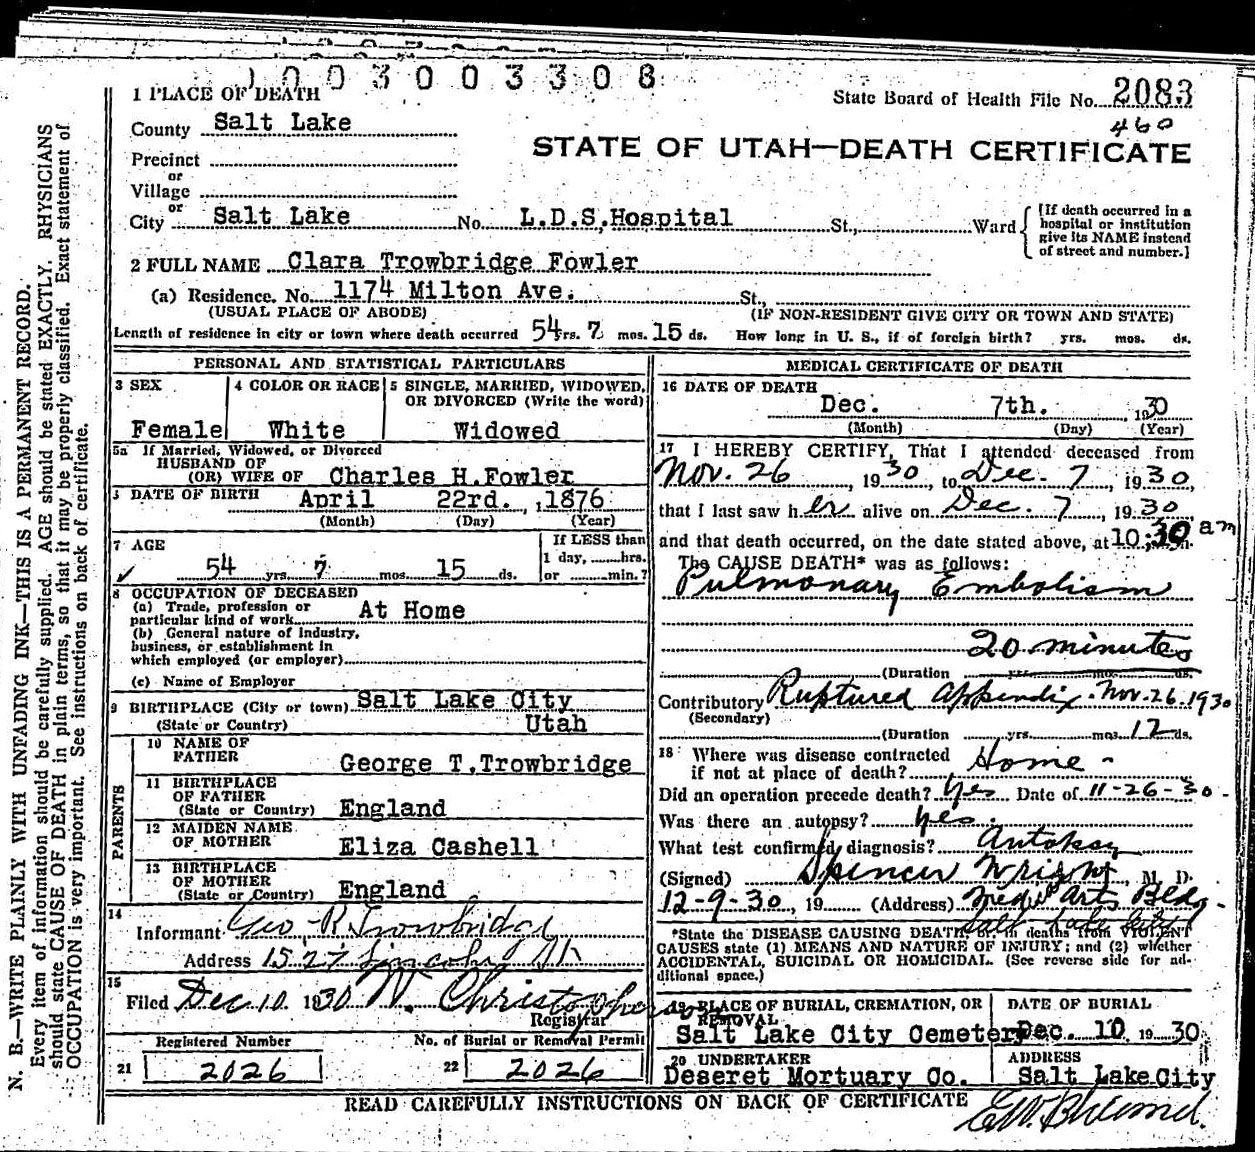 1003003308
1 PLACE OF DEATH
State Board of Health File No. 2083
460
County Salt Lake
STATE OF UTAH—DEATH CERTIFICATE
Precinct
or
Village
or
City Salt Lake No. L.D.S. Hospital St., Ward
[If death occurred in a
hospital or institution
give its NAME instead
of street and number.]
2 FULL NAME Clara Trowbridge Fowler
(a) Residence. No. 1174 Milton Ave. St.,
(USUAL PLACE OF ABODE) (IF NON-RESIDENT GIVE CITY OR TOWN AND STATE)
Length of residence in city or town where death occurred 54 yrs. 7 mos. 15 ds. How long in U. S., if of foreign birth? yrs. mos. ds.
PERSONAL AND STATISTICAL PARTICULARS
3 SEX
Female
4 COLOR OR RACE
White
5 SINGLE, MARRIED, WIDOWED,
OR DIVORCED (Write the word)
Widowed
5a If Married, Widowed, or Divorced
HUSBAND OF
(OR) WIFE OF Charles H. Fowler
DATE OF BIRTH April 22rd. , 1876
(Month) (Day) (Year)
7 AGE
54 yrs. 7 mos. 15 ds.
If LESS than
1 day, hrs.
or min.?
8 OCCUPATION OF DECEASED
(a) Trade, profession or
particular kind of work At Home
(b) General nature of industry,
business, or establishment in
which employed (or employer)
(c) Name of Employer
9 BIRTHPLACE (City or town) Salt Lake City
(State or Country) Utah
PARENTS
10 NAME OF
FATHER George T. Trowbridge
11 BIRTHPLACE
OF FATHER
(State or Country) England
12 MAIDEN NAME
OF MOTHER Eliza Cashell
13 BIRTHPLACE
OF MOTHER
(State or Country) England
14
Informant Geo R. Trowbridge
Address 1527 Lincoln St
15
Filed Dec 10 1930 W. Christopherson
Registrar
Registered Number
21 2026
No. of Burial or Removal Permit
22 2026
MEDICAL CERTIFICATE OF DEATH
16 DATE OF DEATH
Dec. 7th. 1930
(Month) (Day) (Year)
17 I HEREBY CERTIFY, That I attended deceased from
Nov. 26, 1930, to Dec. 7, 1930,
that I last saw her alive on Dec. 7, 1930
and that death occurred, on the date stated above, at 10:30 am
The CAUSE DEATH* was as follows:
Pulmonary Embolism
20 minutes
(Duration yrs. mos. ds.
Contributory Ruptured Appendix. Nov. 26. 1930
(Secondary)
(Duration yrs. mos. 12 ds.
18 Where was disease contracted
if not at place of death? Home -
Did an operation precede death? Yes Date of 11-26-30.
Was there an autopsy? Yes.
What test confirmed diagnosis? Autopsy
(Signed) Spencer Wright, M. D.
12-9-30, 19 (Address) Med Arts Bldg.
Salt Lake City
*State the DISEASE CAUSING DEATH, in deaths from VIOLENT
CAUSES state (1) MEANS AND NATURE OF INJURY; and (2) whether
ACCIDENTAL, SUICIDAL OR HOMICIDAL. (See reverse side for ad-
ditional space.)
19 PLACE OF BURIAL, CREMATION, OR
REMOVAL
Salt Lake City Cemetery
DATE OF BURIAL
Dec. 10 1930
20 UNDERTAKER
Deseret Mortuary Co.
ADDRESS
Salt Lake City
READ CAREFULLY INSTRUCTIONS ON BACK OF CERTIFICATE
N. B.—WRITE PLAINLY WITH UNFADING INK—THIS IS A PERMANENT RECORD.
Every item of information should be carefully supplied. AGE should be stated EXACTLY. PHYSICIANS
should state CAUSE OF DEATH in plain terms, so that it may be properly classified. Exact statement of
OCCUPATION is very important. See instructions on back of certificate.